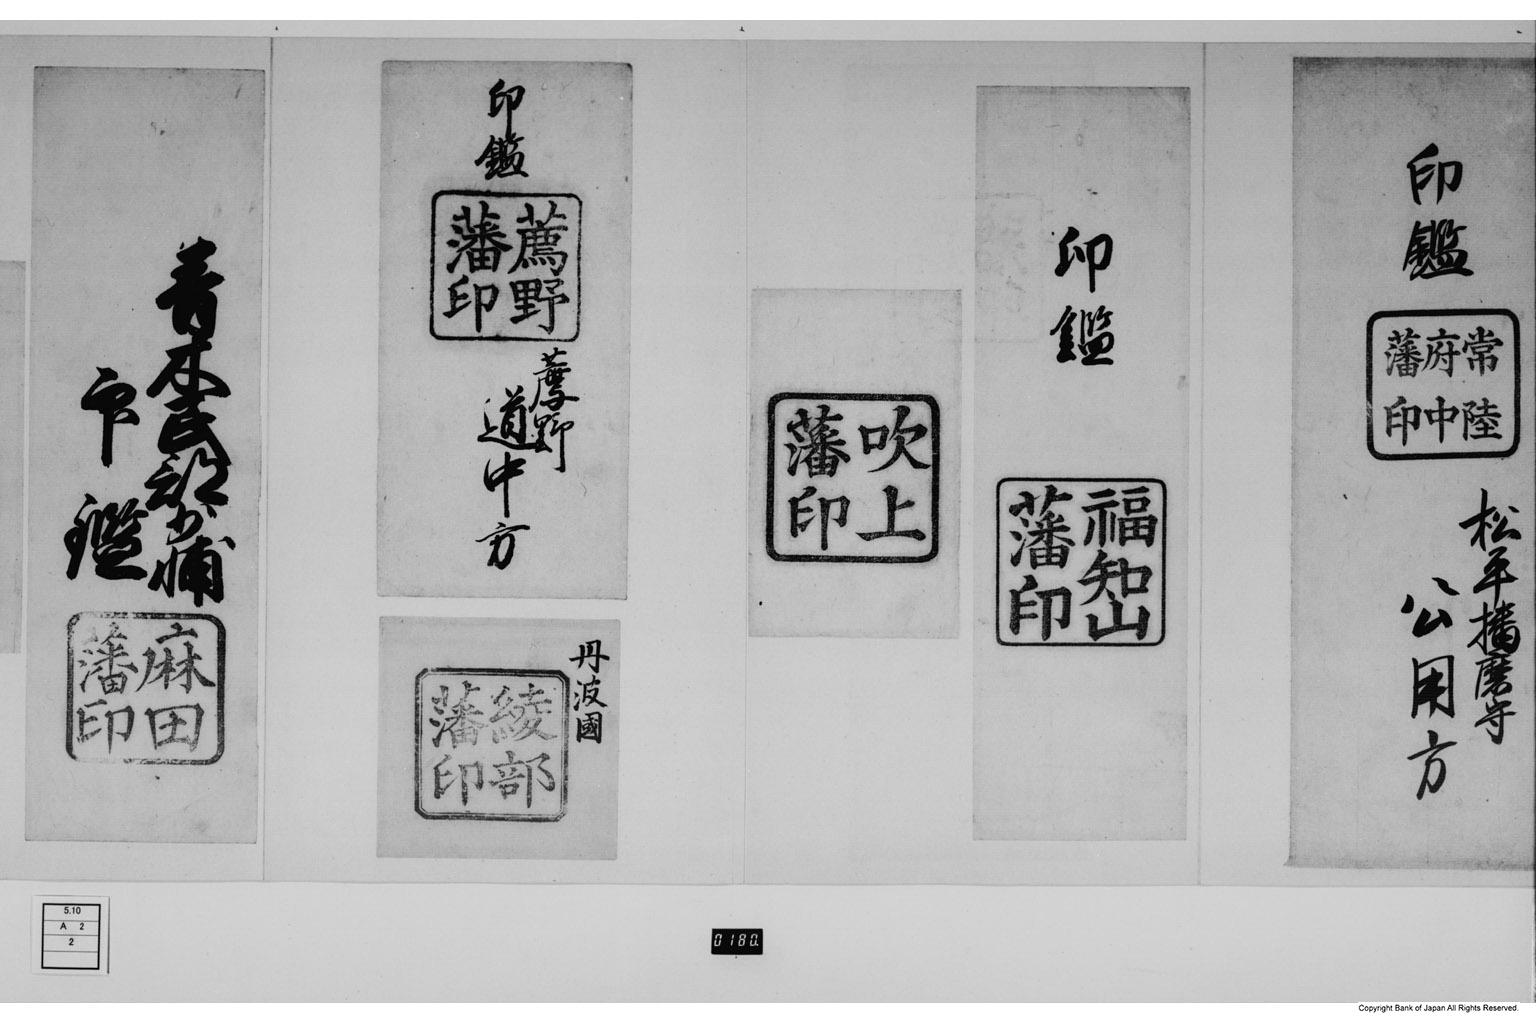 印鑑
常陸
府中
藩印
松平播磨守
公用方
印鑑
福知山
藩印
吹上
藩印
印鑑
薦野
藩印
薦野
道中方
丹波國
綾部
藩印
青木民部少輔
印鑑
麻田
藩印
5.10
A 2
2
0180.
Copyright Bank of Japan All Rights Reserved.